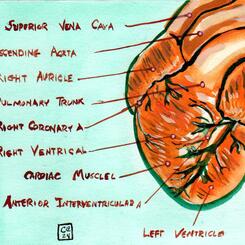 Superior Vena Cava
scending Aorta
Right Auricle
Pulmonary Trunk
Right Coronary A
Right Ventrical
Cardiac Musclel
Anterior Interventriculad A
Left Ventricle